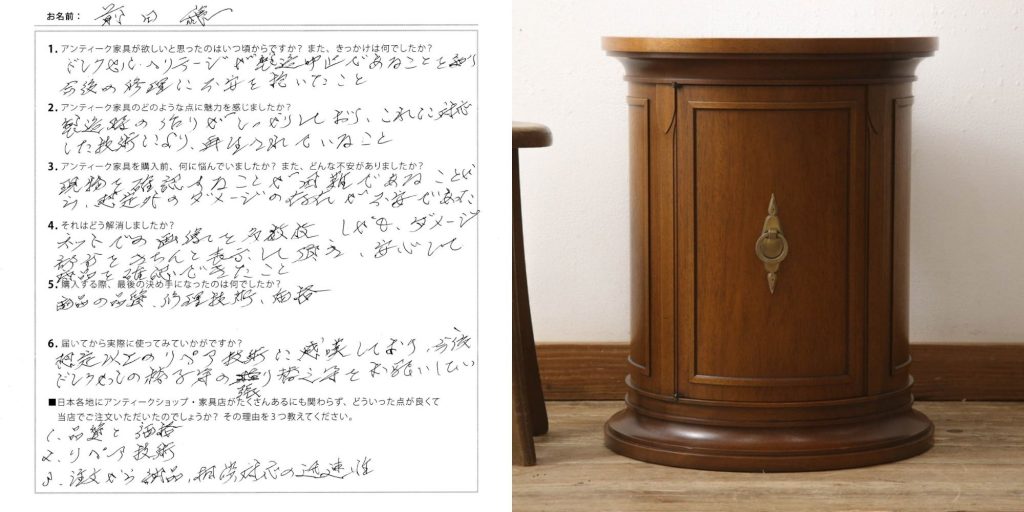 お名前： 前田 穣
1. アンティーク家具が欲しいと思ったのはいつ頃からですか？ また、きっかけは何でしたか？
ドレクセル・ヘリテージが製造中止であることを知り
今後の修理に不安を抱いてたこと
2. アンティーク家具のどのような点に魅力を感じましたか？
製造時の作りがしっかりしており、これに対応
した技術により、再生されていること
3. アンティーク家具を購入前、何に悩んでいましたか？ また、どんな不安がありましたか？
現物を確認することが困難であることから
、想定外のダメージの存在が不安であった
4. それはどう解消しましたか？
ネットでの画像を多数枚 しかも、ダメージ
部分をきちんと表示して頂き、安心して
商品を確認できたこと
5. 購入する際、最後の決め手になったのは何でしたか？
商品の品質、修理技術、価格
6. 届いてから実際に使ってみていかがですか？
想定以上のリペア技術に感嘆しており、今後
ドレクセルの椅子等の張り替え等をお願いしたい
■日本各地にアンティークショップ・家具店がたくさんあるにも関わらず、どういった点が良くて
当店でご注文いただいたのでしょうか？ その理由を３つ教えてください。
1. 品質と価格
2. リペア技術
3. 注文から納品、相談対応の迅速性